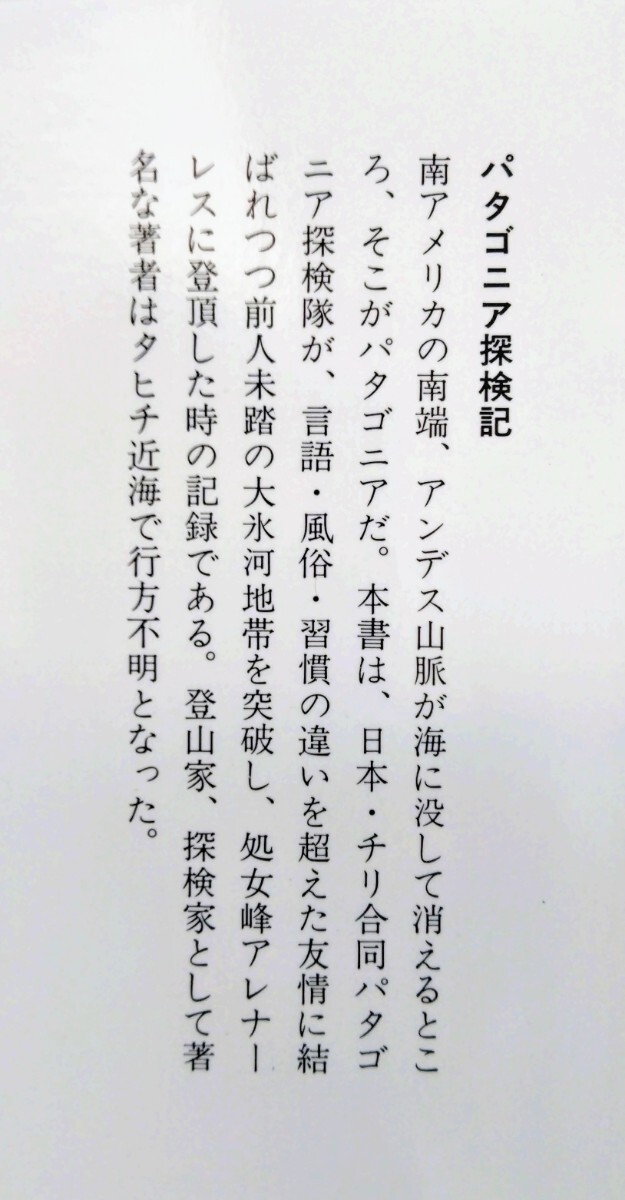 パタゴニア探検記
南アメリカの南端、アンデス山脈が海に没して消えるとこ
ろ、そこがパタゴニアだ。本書は、日本・チリ合同パタゴ
ニア探検隊が、言語・風俗・習慣の違いを超えた友情に結
ばれつつ前人未踏の大氷河地帯を突破し、処女峰アレナー
レスに登頂した時の記録である。登山家、探検家として著
名な著者はタヒチ近海で行方不明となった。